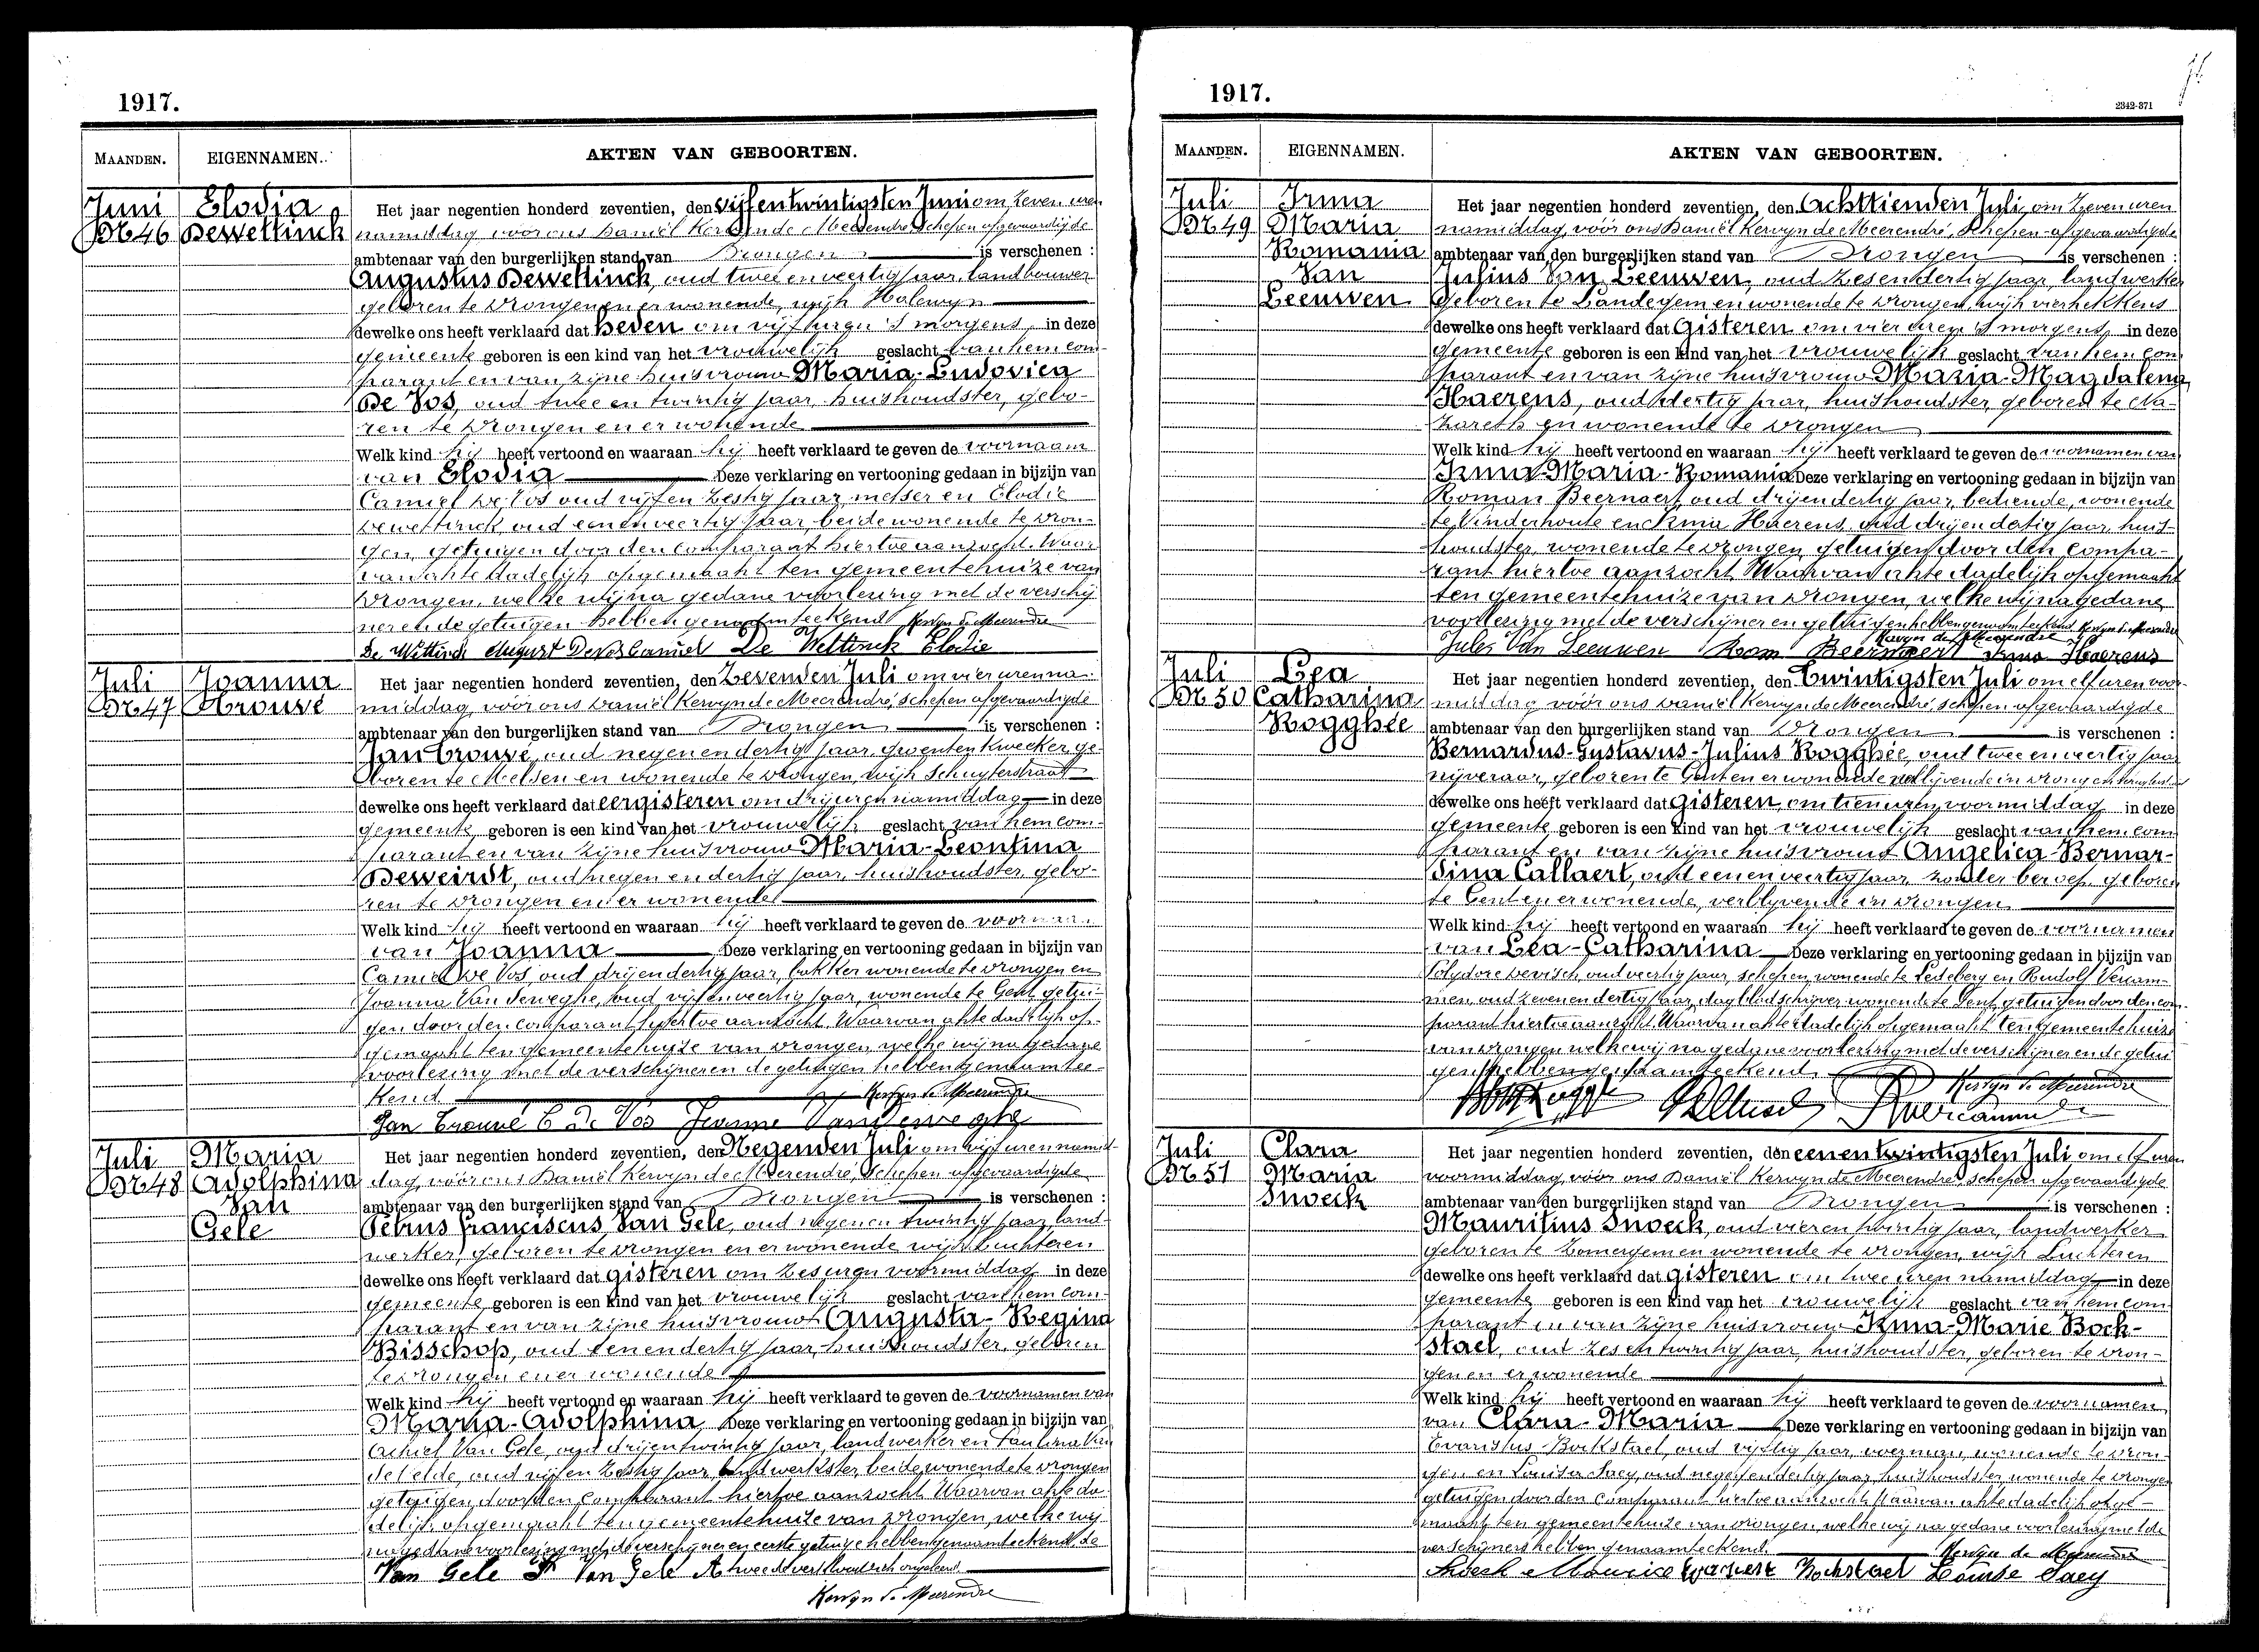 1917.
MAANDEN. EIGENNAMEN. AKTEN VAN GEBOORTEN.
Juni
Nr 46
Elodia
Dewettinck
Het jaar negentien honderd zeventien, den vijfentwintigsten Juni om zeven uren
namiddag, vóór ons Daniël Kervyn de Meerendré, schepen afgevaardigde
ambtenaar van den burgerlijken stand van Drongen is verschenen :
Augustus Dewettinck, oud twee en veertig jaar, landbouwer
geboren te Drongen en er wonende, wijk Halewyn
dewelke ons heeft verklaard dat heden om vijf uren 's morgens, in deze
gemeente geboren is een kind van het vrouwelijk geslacht van hem com-
parant en van zijne huisvrouw Maria-Ludovica
De Vos, oud twee en twintig jaar, huishoudster, gebo-
ren te Drongen en er wonende
Welk kind hij heeft vertoond en waaraan hij heeft verklaard te geven de voornaam
van Elodia Deze verklaring en vertooning gedaan in bijzijn van
Camiel De Vos oud vijf en zestig jaar, metser en Elodie
Dewettinck, oud een en veertig jaar, beide wonende te Dron-
gen, getuigen door den comparant hiertoe aanzocht. Waar
van akte dadelijk opgemaakt ten gemeentehuize van
Drongen, welke wij na gedane voorlezing met de verschij
ner en de getuigen hebben genaamteekend Kervyn de Meerendre
De Wettinck August De Vos Camiel De Wettinck Elodie
Juli
Nr 47
Joanna
Trouvé
Het jaar negentien honderd zeventien, den Zevenden Juli om vier uren na-
middag, vóór ons Daniël Kervyn de Meerendré, schepen afgevaardigde
ambtenaar van den burgerlijken stand van Drongen is verschenen :
Jan Trouvé, oud negen en dertig jaar, groentenkweeker, ge-
boren te Melsen en wonende te Drongen, wijk Schuyterstraat
dewelke ons heeft verklaard dat eergisteren om drij uren namiddag in deze
gemeente geboren is een kind van het vrouwelijk geslacht van hem com-
parant en van zijne huisvrouw Maria-Leontina
Deweirdt, oud negen en dertig jaar, huishoudster, gebo-
ren te Drongen en er wonende
Welk kind hij heeft vertoond en waaraan hij heeft verklaard te geven de voornaam
van Joanna Deze verklaring en vertooning gedaan in bijzijn van
Camiel De Vos, oud drijendertig jaar, bakker wonende te Drongen en
Joanna Van Deweghe, oud vijfenveertig jaar, wonende te Gent, getui-
gen door den comparant hiertoe aanzocht. Waarvan akte dadelijk op-
gemaakt ten gemeentehuize van Drongen, welke wij na gedane
voorlezing met de verschijner en de getuigen hebben genaamtee-
kend Kervyn de Meerendre
Jan Trouvé C De Vos Jeanne Vandeweghe
Juli
Nr 48
Maria
Adolphina
Van
Gele
Het jaar negentien honderd zeventien, den Negenden Juli om vijf uren namid-
dag, vóór ons Daniël Kervyn de Meerendré, schepen afgevaardigde
ambtenaar van den burgerlijken stand van Drongen is verschenen :
Petrus Franciscus Van Gele, oud negen en twintig jaar, land-
werker, geboren te Drongen en er wonende wijk Luchteren
dewelke ons heeft verklaard dat gisteren om zes uren voormiddag in deze
gemeente geboren is een kind van het vrouwelijk geslacht van hem com-
parant en van zijne huisvrouw Augusta-Regina
Bisschop, oud een en dertig jaar, huishoudster, geboren
te Drongen en er wonende
Welk kind hij heeft vertoond en waaraan hij heeft verklaard te geven de voornamen van
Maria-Adolphina Deze verklaring en vertooning gedaan in bijzijn van
Achiel Van Gele, oud drijentwintig jaar, landwerker en Paulina Van
de Velde, oud vijf en zestig jaar, landwerkster, beide wonende te Drongen
getuigen door den comparant hiertoe aanzocht. Waarvan akte da-
delijk opgemaakt ten gemeentehuize van Drongen, welke wij
na gedane voorlezing met de verschijner en eerste getuige hebben genaamteekend, de
Van Gele P Van Gele A tweede verklaard zich ongeleerd.
Kervyn de Meerendre
1917.
2342-371
MAANDEN. EIGENNAMEN. AKTEN VAN GEBOORTEN.
Juli
Nr 49
Irma
Maria
Romania
Van
Leeuwen
Het jaar negentien honderd zeventien, den Achttienden Juli, om zeven uren
namiddag, vóór ons Daniël Kervyn de Meerendré, schepen-afgevaardigde
ambtenaar van den burgerlijken stand van Drongen is verschenen :
Julius Van Leeuwen, oud zesendertig jaar, landwerker
geboren te Landegem en wonende te Drongen, wijk vierhekkens
dewelke ons heeft verklaard dat Gisteren om vier uren 's morgens, in deze
gemeente geboren is een kind van het vrouwelijk geslacht van hem com
parant en van zijne huisvrouw Maria-Magdalena
Haerens, oud dertig jaar, huishoudster, geboren te Na-
zareth en wonende te Drongen
Welk kind hij heeft vertoond en waaraan hij heeft verklaard te geven de voornamen van
Irma-Maria-Romania Deze verklaring en vertooning gedaan in bijzijn van
Roman Beernaert, oud drijendertig jaar, bediende, wonende
te Vinderhoute en Irma Haerens, oud drijendertig jaar, huis-
houdster, wonende te Drongen, getuigen door den compa-
rant hiertoe aanzocht. Waarvan akte dadelijk opgemaakt
ten gemeentehuize van Drongen, welke wij na gedane
voorlezing met de verschijner en getuigen hebben genaamteekend Kervyn de Meerendre
Kervyn de Meerendre
Jules Van Leeuwen Rom Beernaert Irma Haerens
Juli
Nr 50
Lea
Catharina
Rogghée
Het jaar negentien honderd zeventien, den Twintigsten Juli om elf uren voor-
middag vóór ons Daniël Kervyn de Meerendré, schepen afgevaardigde
ambtenaar van den burgerlijken stand van Drongen is verschenen :
Bernardus-Gustavus-Julius Rogghée, oud twee en veertig jaar
nijveraar, geboren te Gent en er wonende verblijvende in Drongen
dewelke ons heeft verklaard dat Gisteren, om tien uren, voormiddag in deze
gemeente geboren is een kind van het vrouwelijk geslacht van hem com
parant en van zijne huisvrouw Angelica-Bernar-
dina Callaert, oud een en veertig jaar zonder beroep, geboren
te Gent en er wonende, verblyvende in Drongen
Welk kind hij heeft vertoond en waaraan hij heeft verklaard te geven de voornamen
van Lea-Catharina Deze verklaring en vertooning gedaan in bijzijn van
Polydore Devisch, oud veertig jaar, schepen, wonende te Ledeberg en Rudolf Vercam-
men, oud zevenendertig jaar, dagbladschrijver wonende te Gent, getuigen door den com-
parant hiertoe aanzocht. Waarvan akte dadelijk opgemaakt ten gemeentehuize
van Drongen welke wij na gedane voorlezing met de verschijner en de getui
gen hebben genaamteekend.
Kervyn de Meerendre
Juli
Nr 51
Clara
Maria
Snoeck
Het jaar negentien honderd zeventien, den eenentwintigsten Juli om elf uren
voormiddag, vóór ons Daniël Kervyn de Meerendré, schepen afgevaardigde
ambtenaar van den burgerlijken stand van Drongen is verschenen :
Mauritius Snoeck, oud vier en twintig jaar, landwerker
geboren te Zomergem en wonende te Drongen, wijk Luchteren
dewelke ons heeft verklaard dat gisteren om twee uren namiddag in deze
gemeente geboren is een kind van het vrouwelijk geslacht van hem com-
parant en van zijne huisvrouw Irma-Marie Bock-
stael, oud zes en twintig jaar, huishoudster, geboren te Dron-
gen en er wonende
Welk kind hij heeft vertoond en waaraan hij heeft verklaard te geven de voornamen
van Clara-Maria Deze verklaring en vertooning gedaan in bijzijn van
Evaristus Bockstael, oud vijftig jaar, voerman, wonende te Dron-
gen en Louisa Saey, oud negen en dertig jaar, huishoudster, wonende te Drongen
getuigen door den comparant hiertoe aanzocht. Waarvan akte dadelijk opge-
maakt ten gemeentehuize van Drongen, welke wij na gedane voorlezing met de
verschijners hebben genaamteekend. Kervyn de Meerendre
Snoeck Maurice Evariste Bockstael Louise Saey